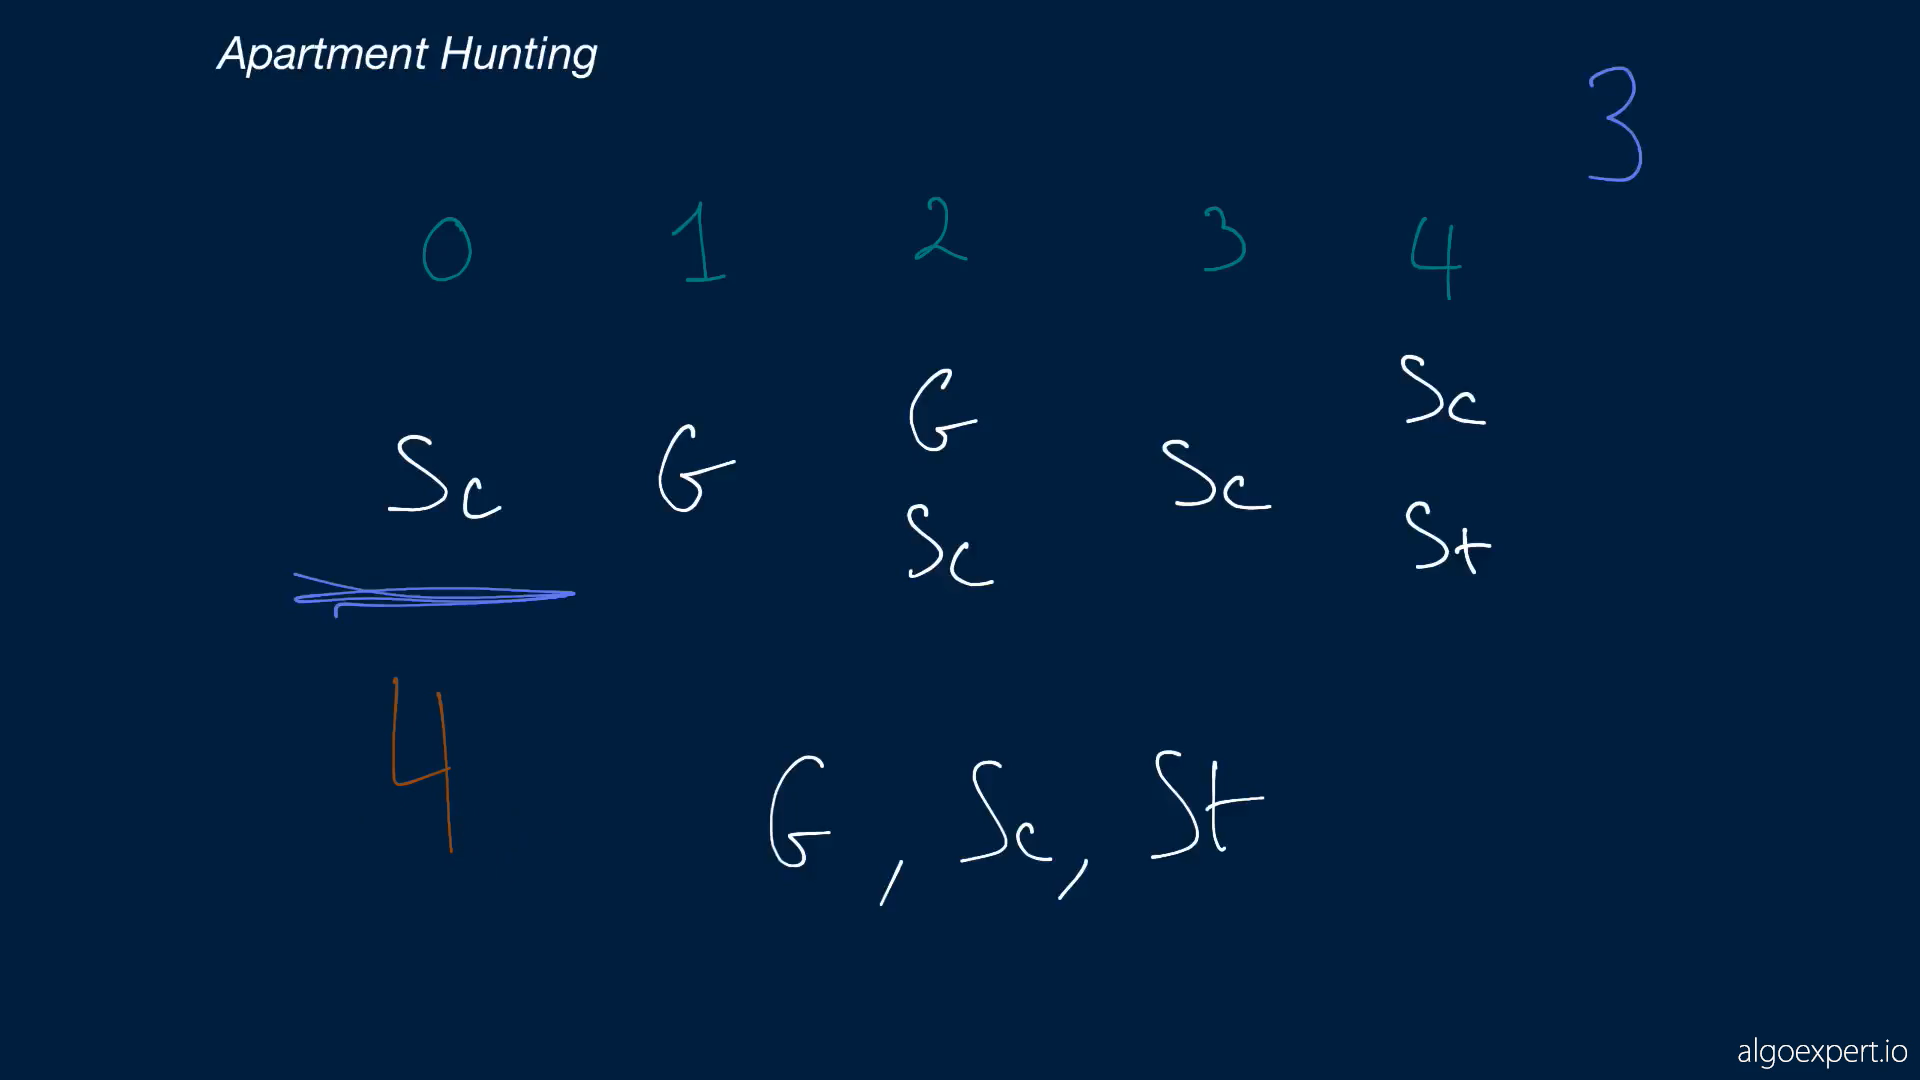 Apartment Hunting
3
0 1 2 3 4
G Sc
Sc G Sc
Sc St
4
G, Sc, St
algoexpert.io